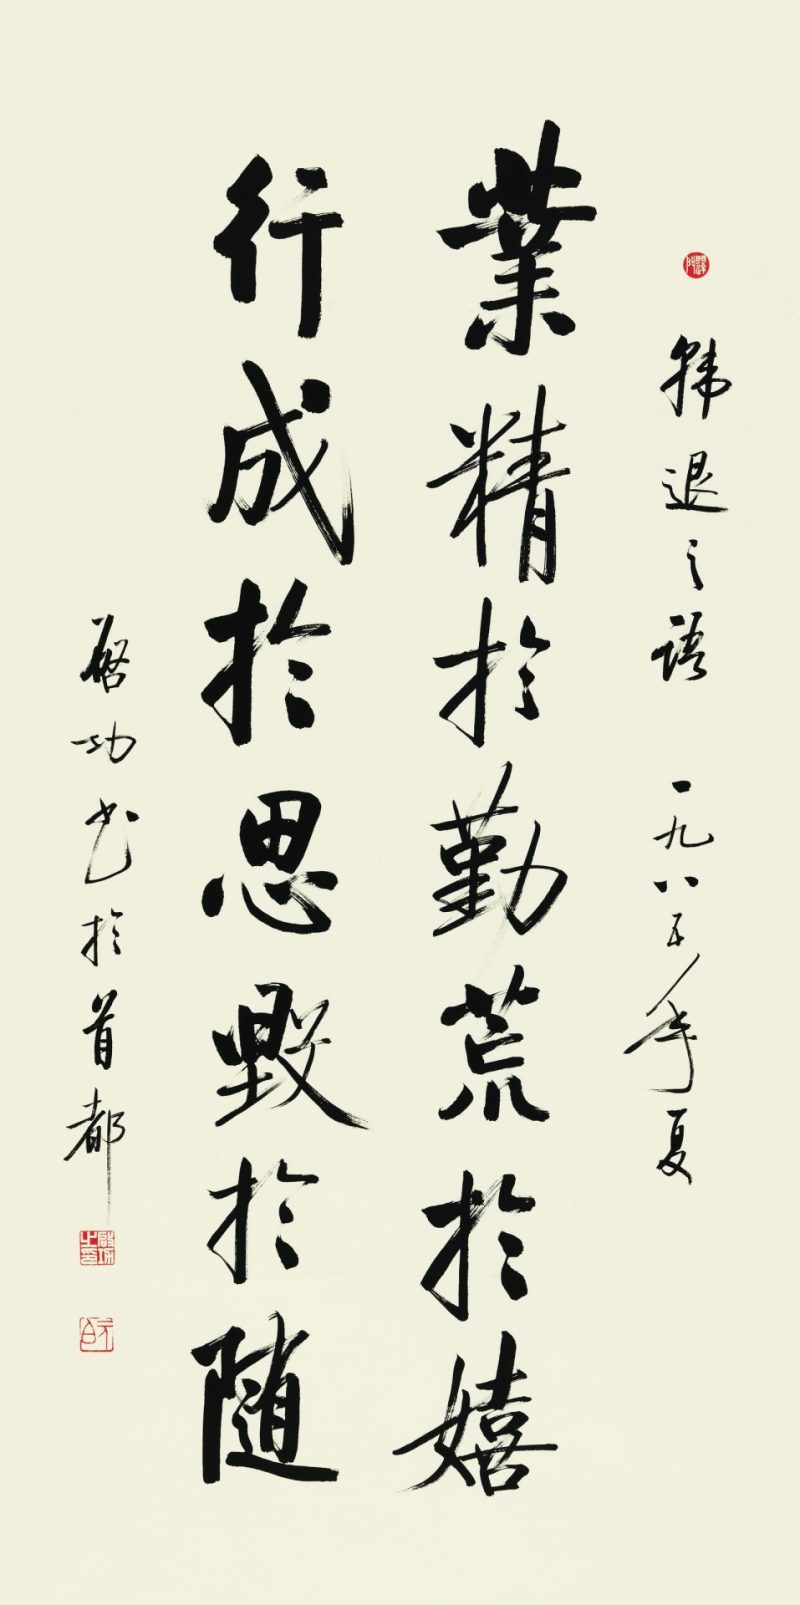 韩退之语 一九八五年夏
業精於勤荒於嬉
行成於思毁於随
启功书於首都
启功之印